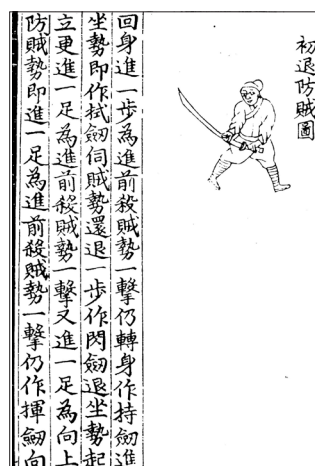 初退防賊圖
回身進一步為進前殺賊勢一擊仍轉身作持劔進
坐勢即作拭劔伺賊勢還退一步作閃劔退坐勢起
立更進一足為進前殺賊勢一擊又進一足為向上
防賊勢即進一足為進前殺賊勢一擊仍作揮劔向